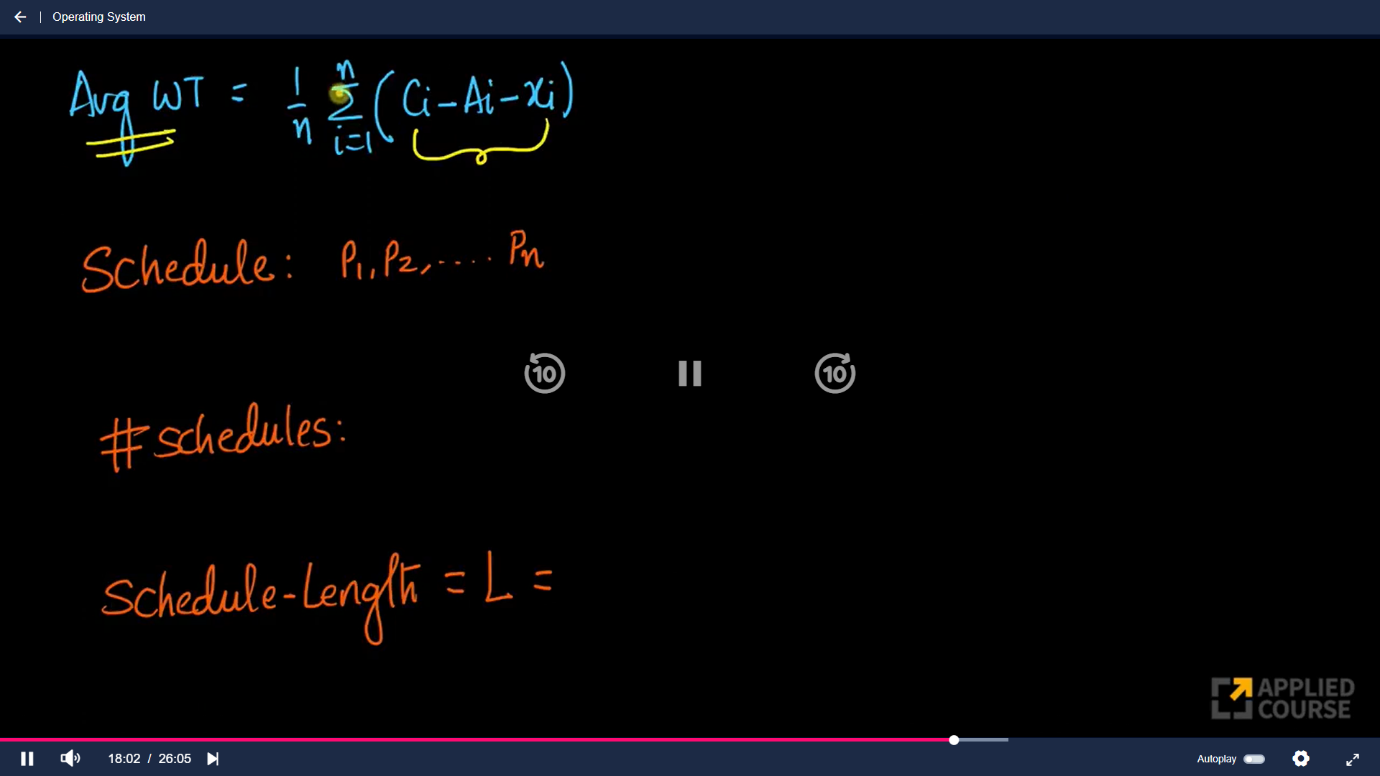 Operating System
Avg WT = 1/n n Σ i=1 (Ci - Ai - xi)
Schedule: P1, P2, ..... Pn
10 10
# schedules:
Schedule-Length = L =
APPLIED
COURSE
18:02 / 26:05 Autoplay